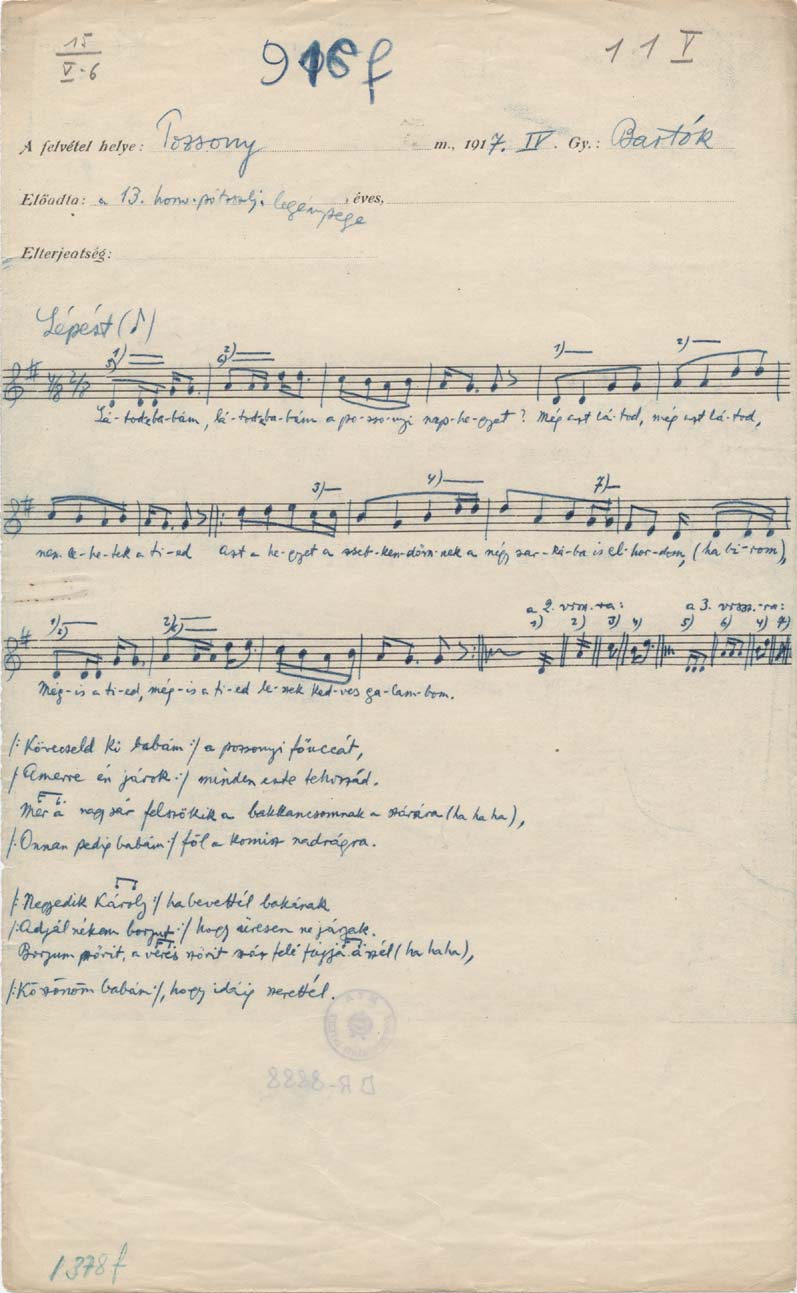 15
V-6
916f
11 V
A felvétel helye: Possony m., 1917. IV. Gy.: Bartók
Előadta: a 13. honv. pótzalj. legénysége, éves,
Elterjedtség:
Lépést (♪)
1) 2) 1) 2)
5) 6)
4/8 2/8
Lá-todzba-bám, lá-todzba-bám a po-zso-nyi nap-he-gyet? Még azt lá-tod, még azt lá-tod,
3) 4) 7)
nem le-he-tek a ti-ed Azt a he-gyet a zseb-ken-dőm-nek a négy sar-ká-ba is el-hor-dom, (ha bi-rom),
a 2. vrsz.-ra: a 3. vrssz.-ra:
1) 2) 3) 4) 5) 6) 4) 7)
Még-is a ti-ed, még-is a ti-ed le-szek ked-ves ga-lam-bom.
/: Kövecseld ki babám :/ a possonyi főuccát,
/ Amerre én járok :/ minden este tehozzád.
Mer a nagy sár felszökik a bakkancsomnak a szárára (ha ha ha),
/: Onnan pedig babám :/ föl a komisz nadrágra.
/: Negyedik Károly :/ ha bevettél bakának
/: Adjál nékem borgyut :/ hogy üresen ne járjak.
szőrit, a szőrit felé fújja a szél (ha ha ha),
/: Köszönöm babám :/, hogy idáig szerettél.
DR-8888
1378f